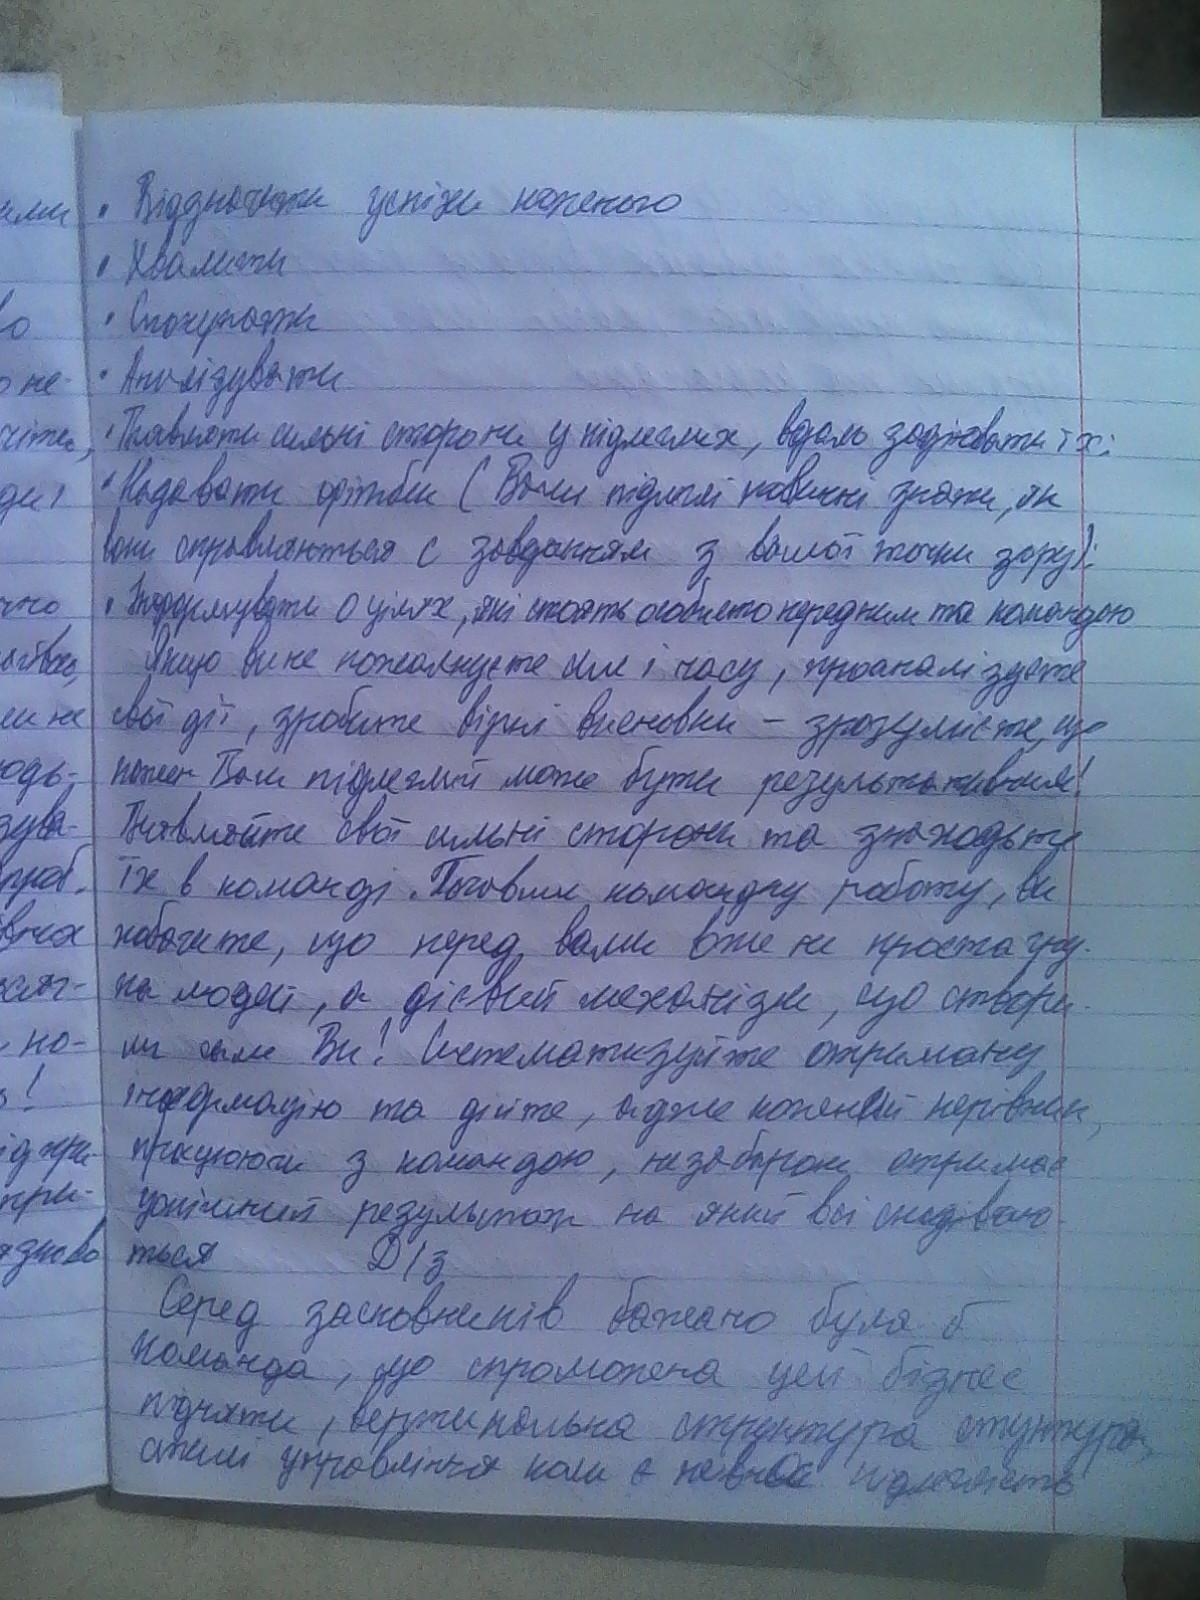 ими • Відзначати успіхи кожного
• Хвалити
во • Спонукати
о не- • Аналізувати
• Виявляти сильні сторони у підлеглих, вдало задіювати їх;
• Надавати фітбек (Ваші підлеглі повинні знати, як
вони справляються с завданням з вашої точки зору);
чно • Інформувати о цілях, які стоять особисто перед ним та командою
Якщо ви не пожалкуєте сил і часу, проаналізуєте
ми не свої дії, зробите вірні висновки – зрозумієте, що
юдь- кожен Ваш підлеглий може бути результативним!
зува- Виявляйте свої сильні сторони та знаходьте
їх в команді. Почавши командну роботу, ви
вних побачите, що перед вами вже не проста гру-
па людей, а дієвий механізм, що створи-
, но- ли саме Ви! Систематизуйте отриману
! інформацію та дійте, адже кожений керівник,
працюючи з командою, незабаром отримає
при- успішний результат на який всі сподіваю-
ться Д/з
Серед засновників бажано була б
команда, що спроможена цей бізнес
підняти, вертикальна структура
стилі управління коли є певна підлеглість